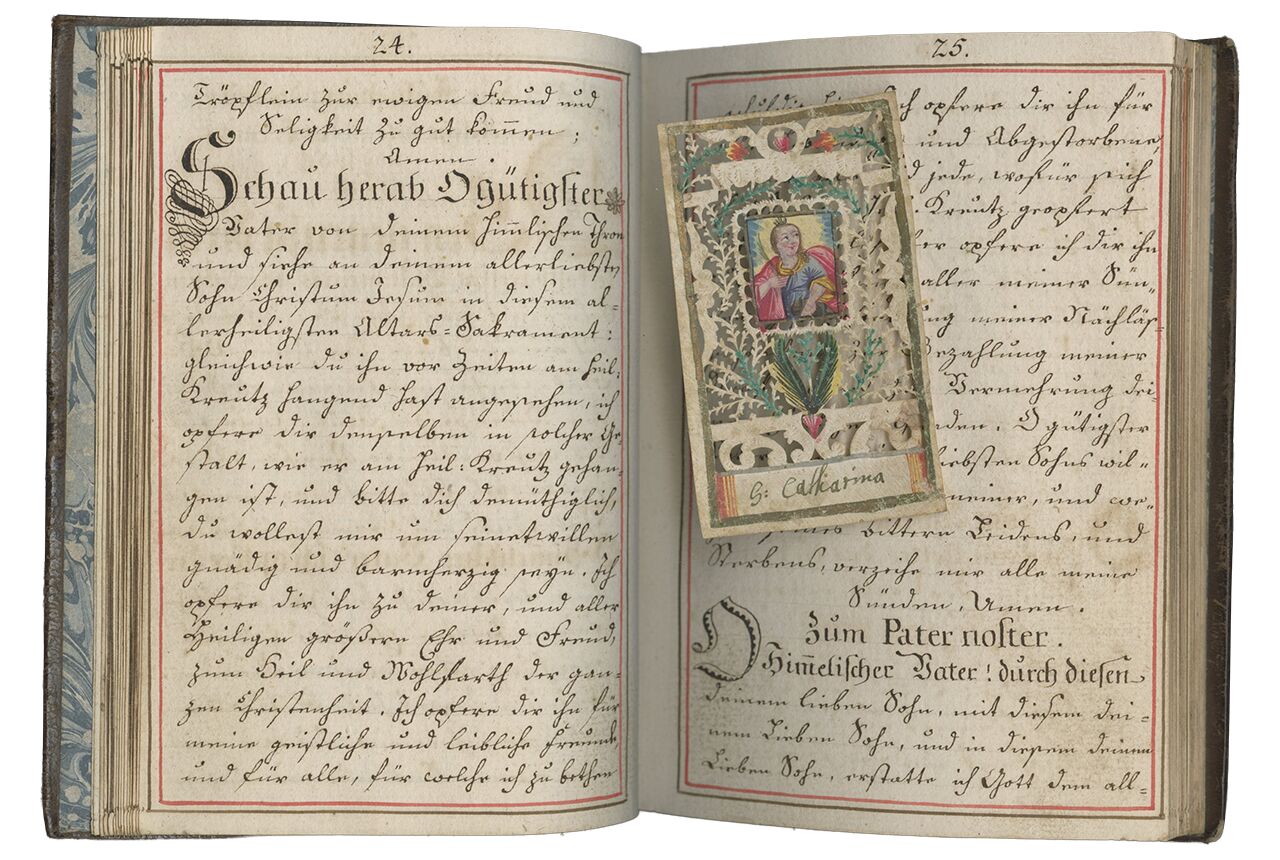 24.
Tröpflein zur ewigen Freud und
Seligkeit zu gut kom̄en;
Amen.
Schau herab O gütigster
Vater von deinem him̄lischen Thron
und siehe an deinem allerliebsten
Sohn Christum Jesum in diesem al-
lerheiligsten Altars-Sakrament:
gleichwie du ihn vor Zeiten am heil:
Kreutz hangend hast angesehen, ich
opfere dir denselben in solcher Ge-
stalt, wie er am heil: Kreutz gehan-
gen ist, und bitte dich demüthiglich,
du wollest mir um seinetwillen
gnädig und barmherzig seyn. Ich
opfere dir ihn zu deiner, und aller
Heiligen größern Ehr und Freud,
zum Heil und Wohlfarth der gan-
zen Christenheit. Ich opfere dir ihn für
meine geistliche und leibliche Freunde,
und für alle, für welche ich zu bethen
25.
Ich opfere dir ihn für
und Abgestorbene,
jede, wofür sich
Kreutz geopfert
opfere ich dir ihn
aller meiner Sün-
meiner Nachläs-
Bezahlung meiner
Vermehrung dei-
O gütigster
liebsten Sohns wil-
meiner, und we-
bittern Leidens, und
Sterbens, verzeihe mir alle meine
Sünden, Amen.
Zum Pater noster.
O Him̄elischer Vater! durch diesen
deinem lieben Sohn, mit diesem dei-
nem Lieben Sohn, und in diesem deinem
Lieben Sohn, erstatte ich Gott dem all-
S: Catharina